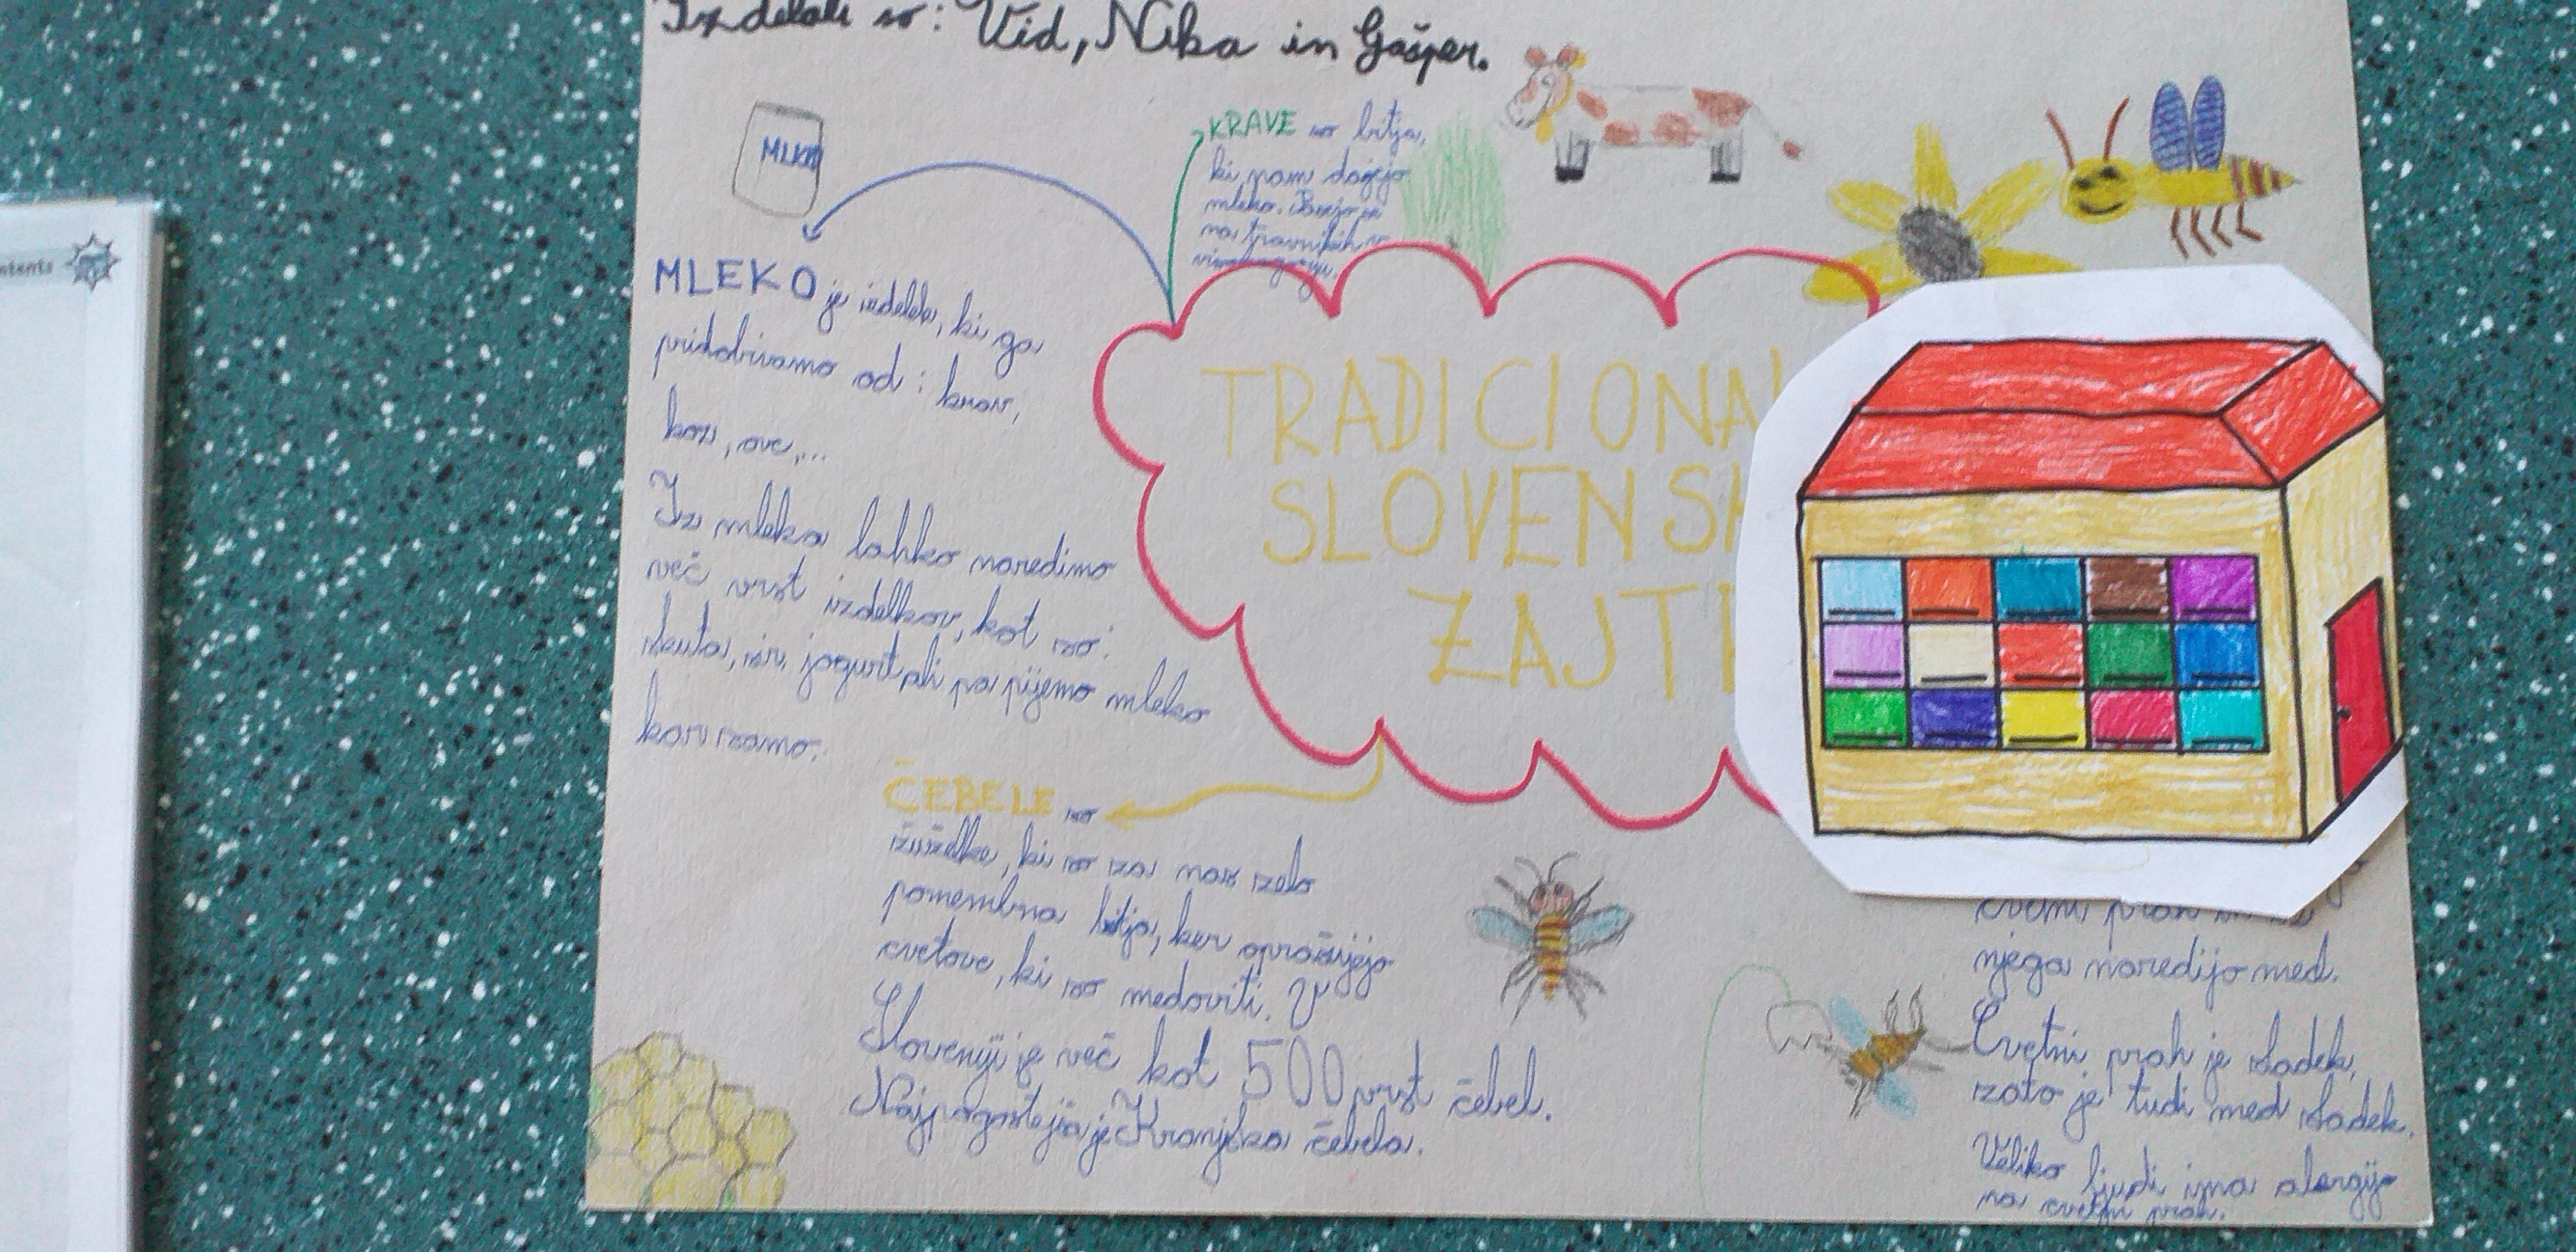 Izdelali so: Vid, Nika in Gašper.
MLEKO
KRAVE so bitja,
ki nam dajejo
mleko. Pasejo se
na travnikih v
MLEKO je izdelek, ki ga
pridobivamo od: krav,
koz, ovc,...
Iz mleka lahko naredimo
več vrst izdelkov, kot so:
skuta, sir, jogurt ali pa pijemo mleko
kar samo.
TRADICIONAL
SLOVENSK
ZAJT
ČEBELE so
žuželke, ki so za nas zelo
pomembna bitja, ker oprašujejo
cvetove, ki so medoviti. V
Sloveniji je več kot 500 vrst čebel.
Najpogostejša je Kranjska čebela.
cvetni prah in iz
njega naredijo med.
Cvetni prah je sladek,
zato je tudi med sladek.
Veliko ljudi ima alergijo
na cvetni prah.
ntents